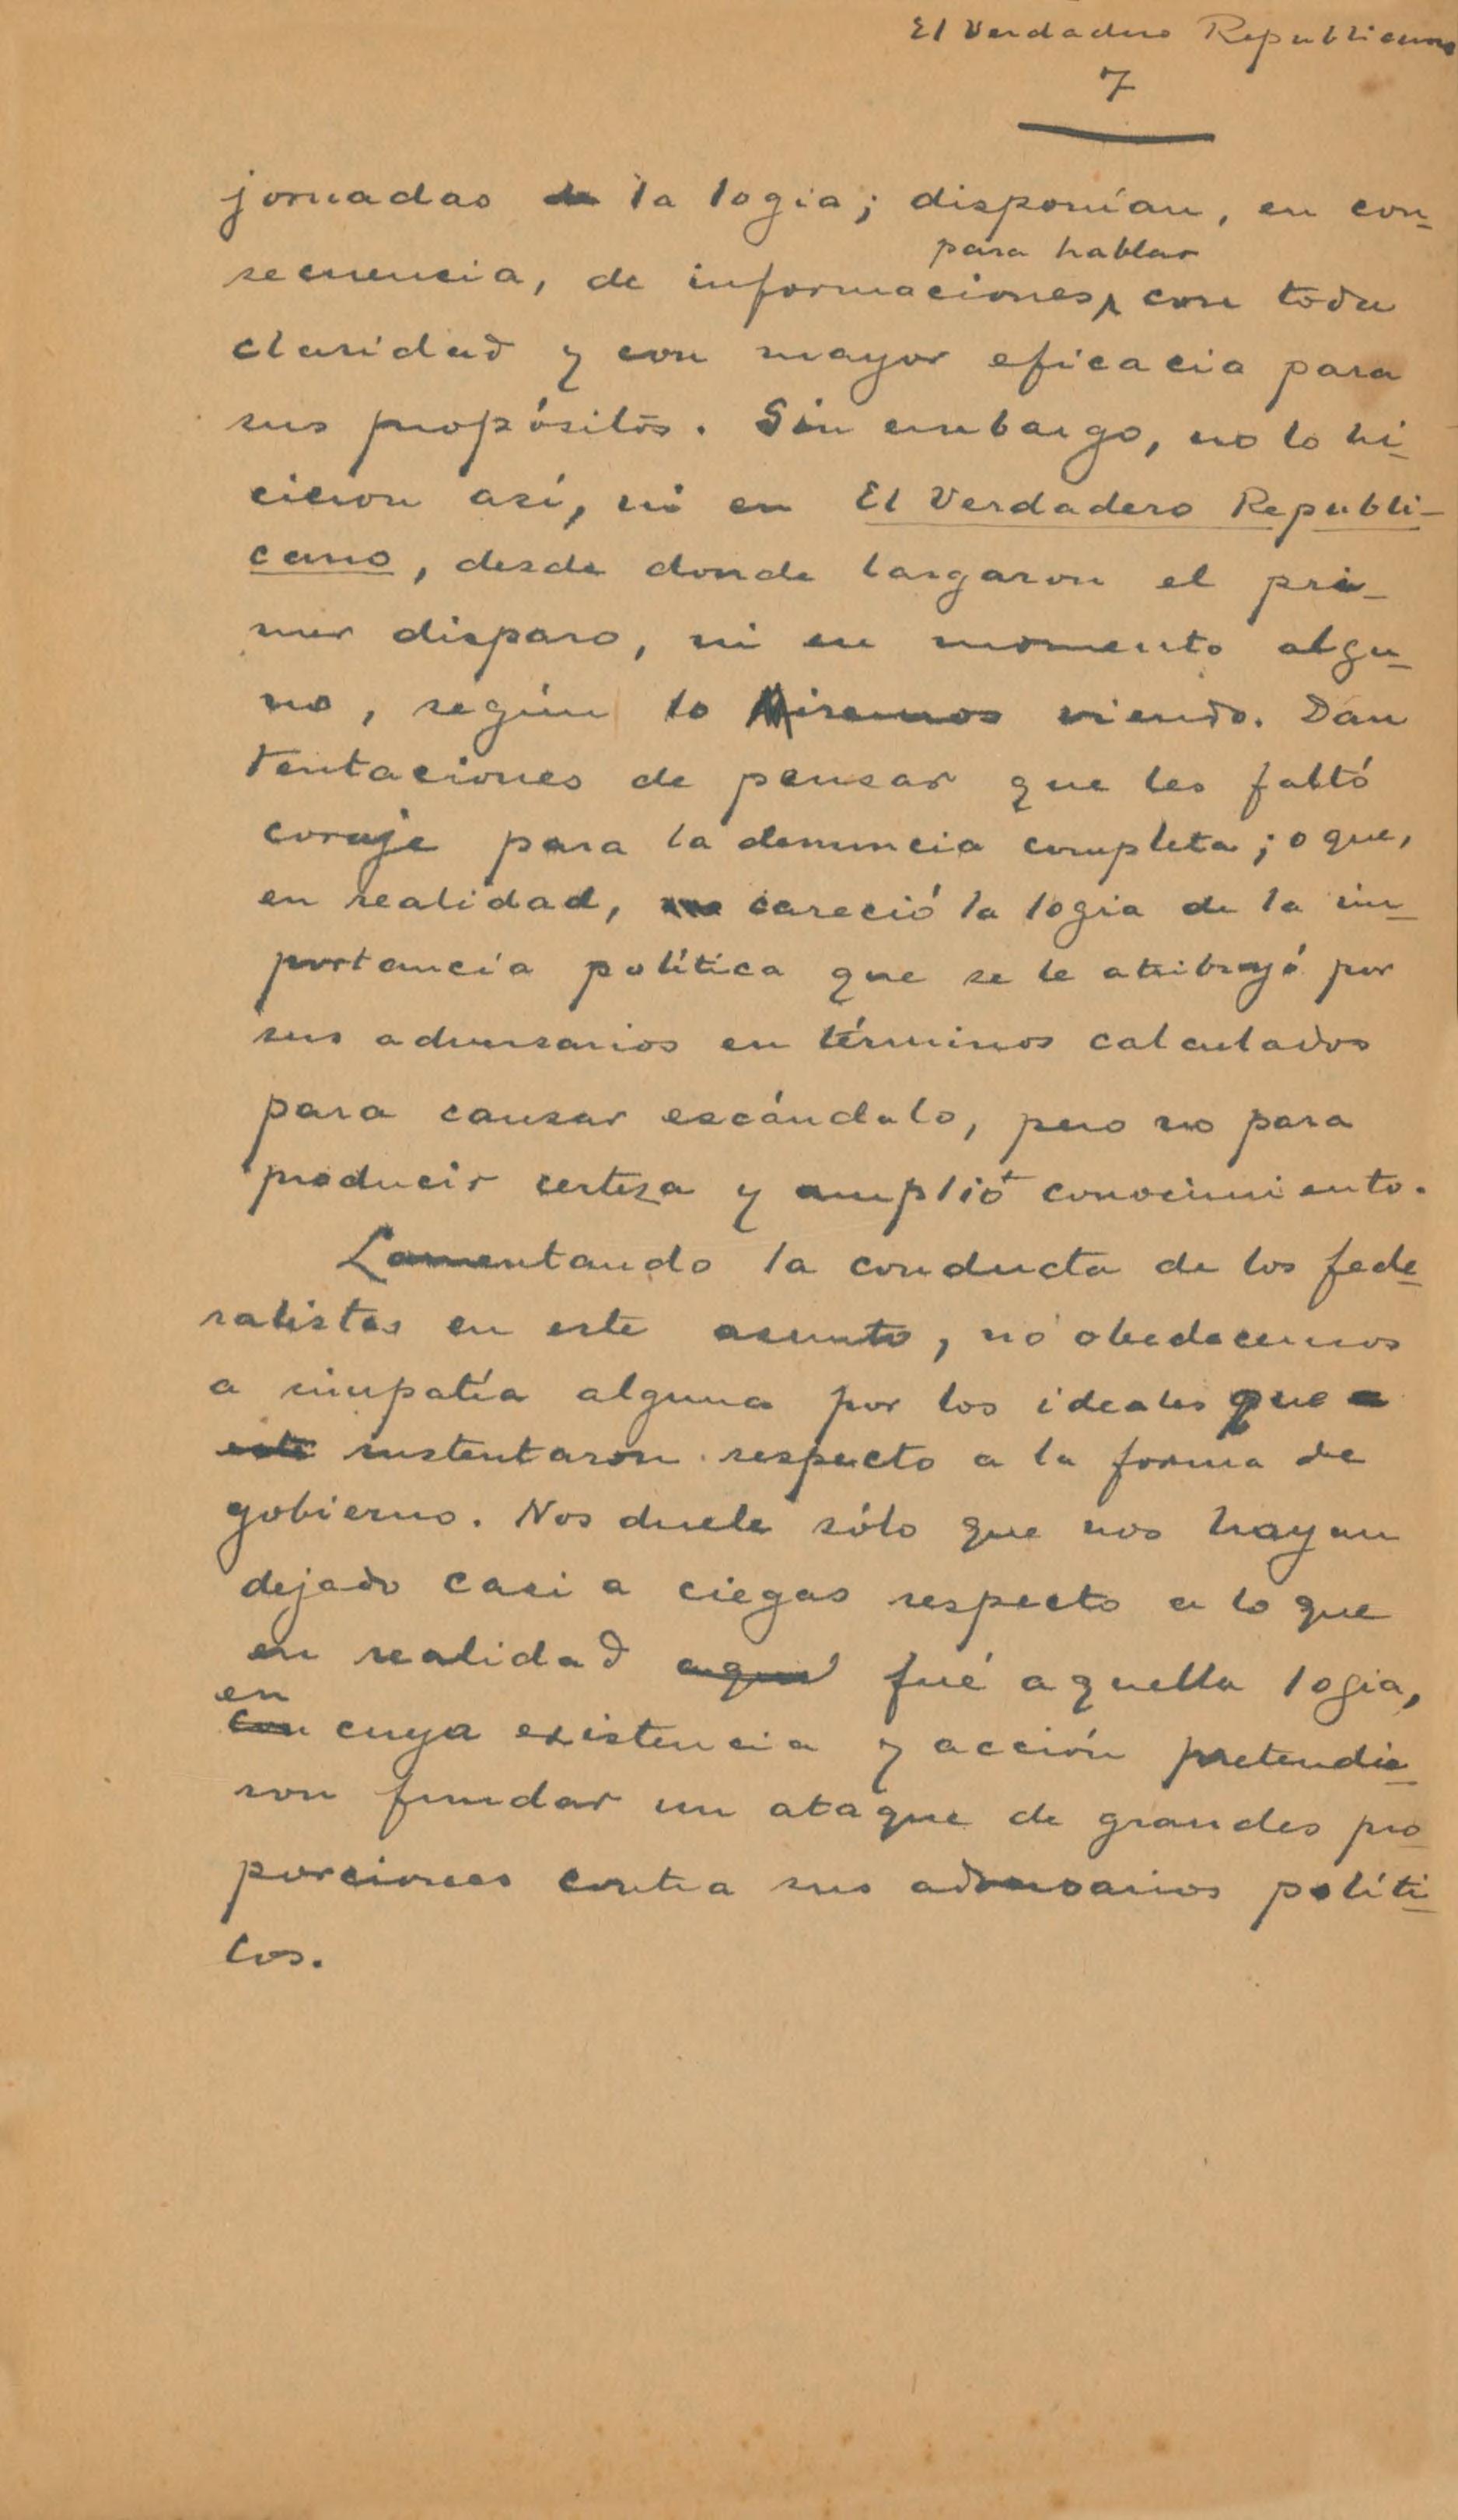 El Verdadero Republicano
7
jornadas de la logia; disponían, en con-
para hablar
secuencia, de informaciones, con toda
claridad y con mayor eficacia para
sus propósitos. Sin embargo, no lo hi-
cieron así, ni en El Verdadero Republi-
cano, desde donde largaron el pri-
mer disparo, ni en momento algu-
no, según lo iremos viendo. Dan
tentaciones de pensar que les faltó
coraje para la denuncia completa; o que,
en realidad, careció la logia de la im-
portancia política que se le atribuyó por
sus adversarios en términos calculados
para causar escándalo, pero no para
producir certeza y amplio conocimiento.
Lamentando la conducta de los fede-
ralistas en este asunto, no obedecemos
a simpatía alguna por los ideales que
sustentaron respecto a la forma de
gobierno. Nos duele sólo que nos hayan
dejado casi a ciegas respecto a lo que
en realidad fué aquella logia,
en
con cuya existencia y acción pretendie-
ron fundar un ataque de grandes pro-
porciones contra sus adversarios políti-
cos.